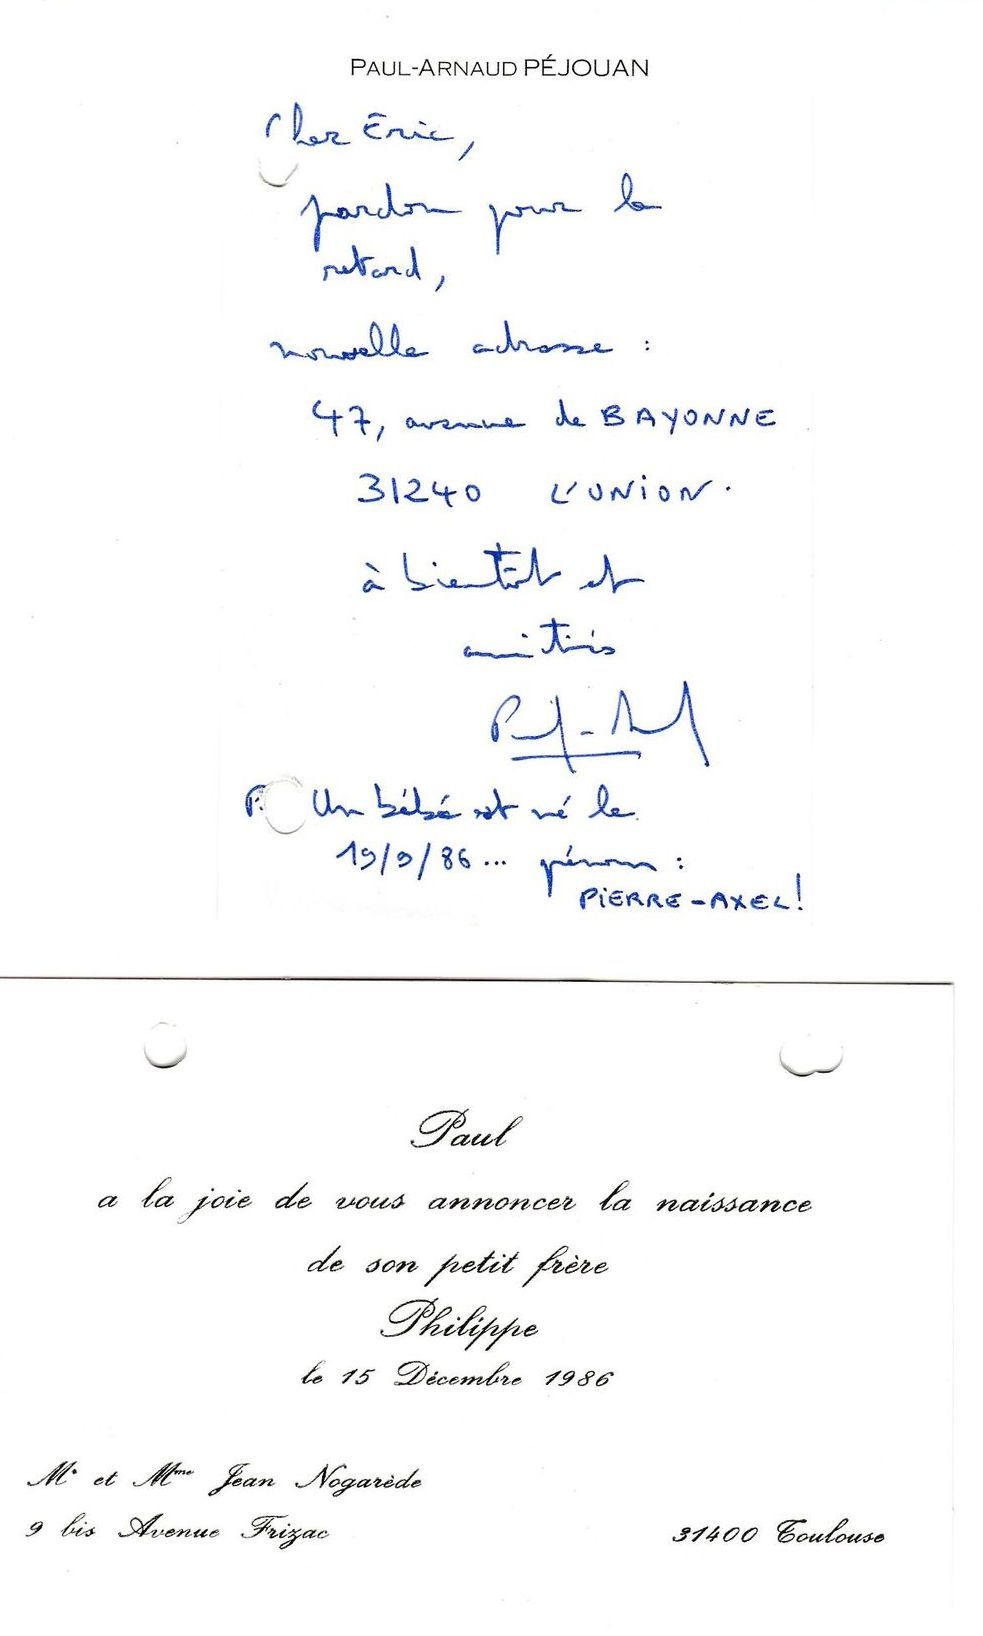 PAUL-ARNAUD PÉJOUAN
Cher Éric,
pardon pour le
retard,
nouvelle adresse :
47, avenue de BAYONNE
31240 L'UNION.
à bientôt et
amitiés
Paul-Arnaud
P. Un bébé est né le
19/9/86... prénom :
PIERRE-AXEL!
Paul
a la joie de vous annoncer la naissance
de son petit frère
Philippe
le 15 Décembre 1986
Mr et Mme Jean Nogarède
9 bis Avenue Frizac
31400 Toulouse